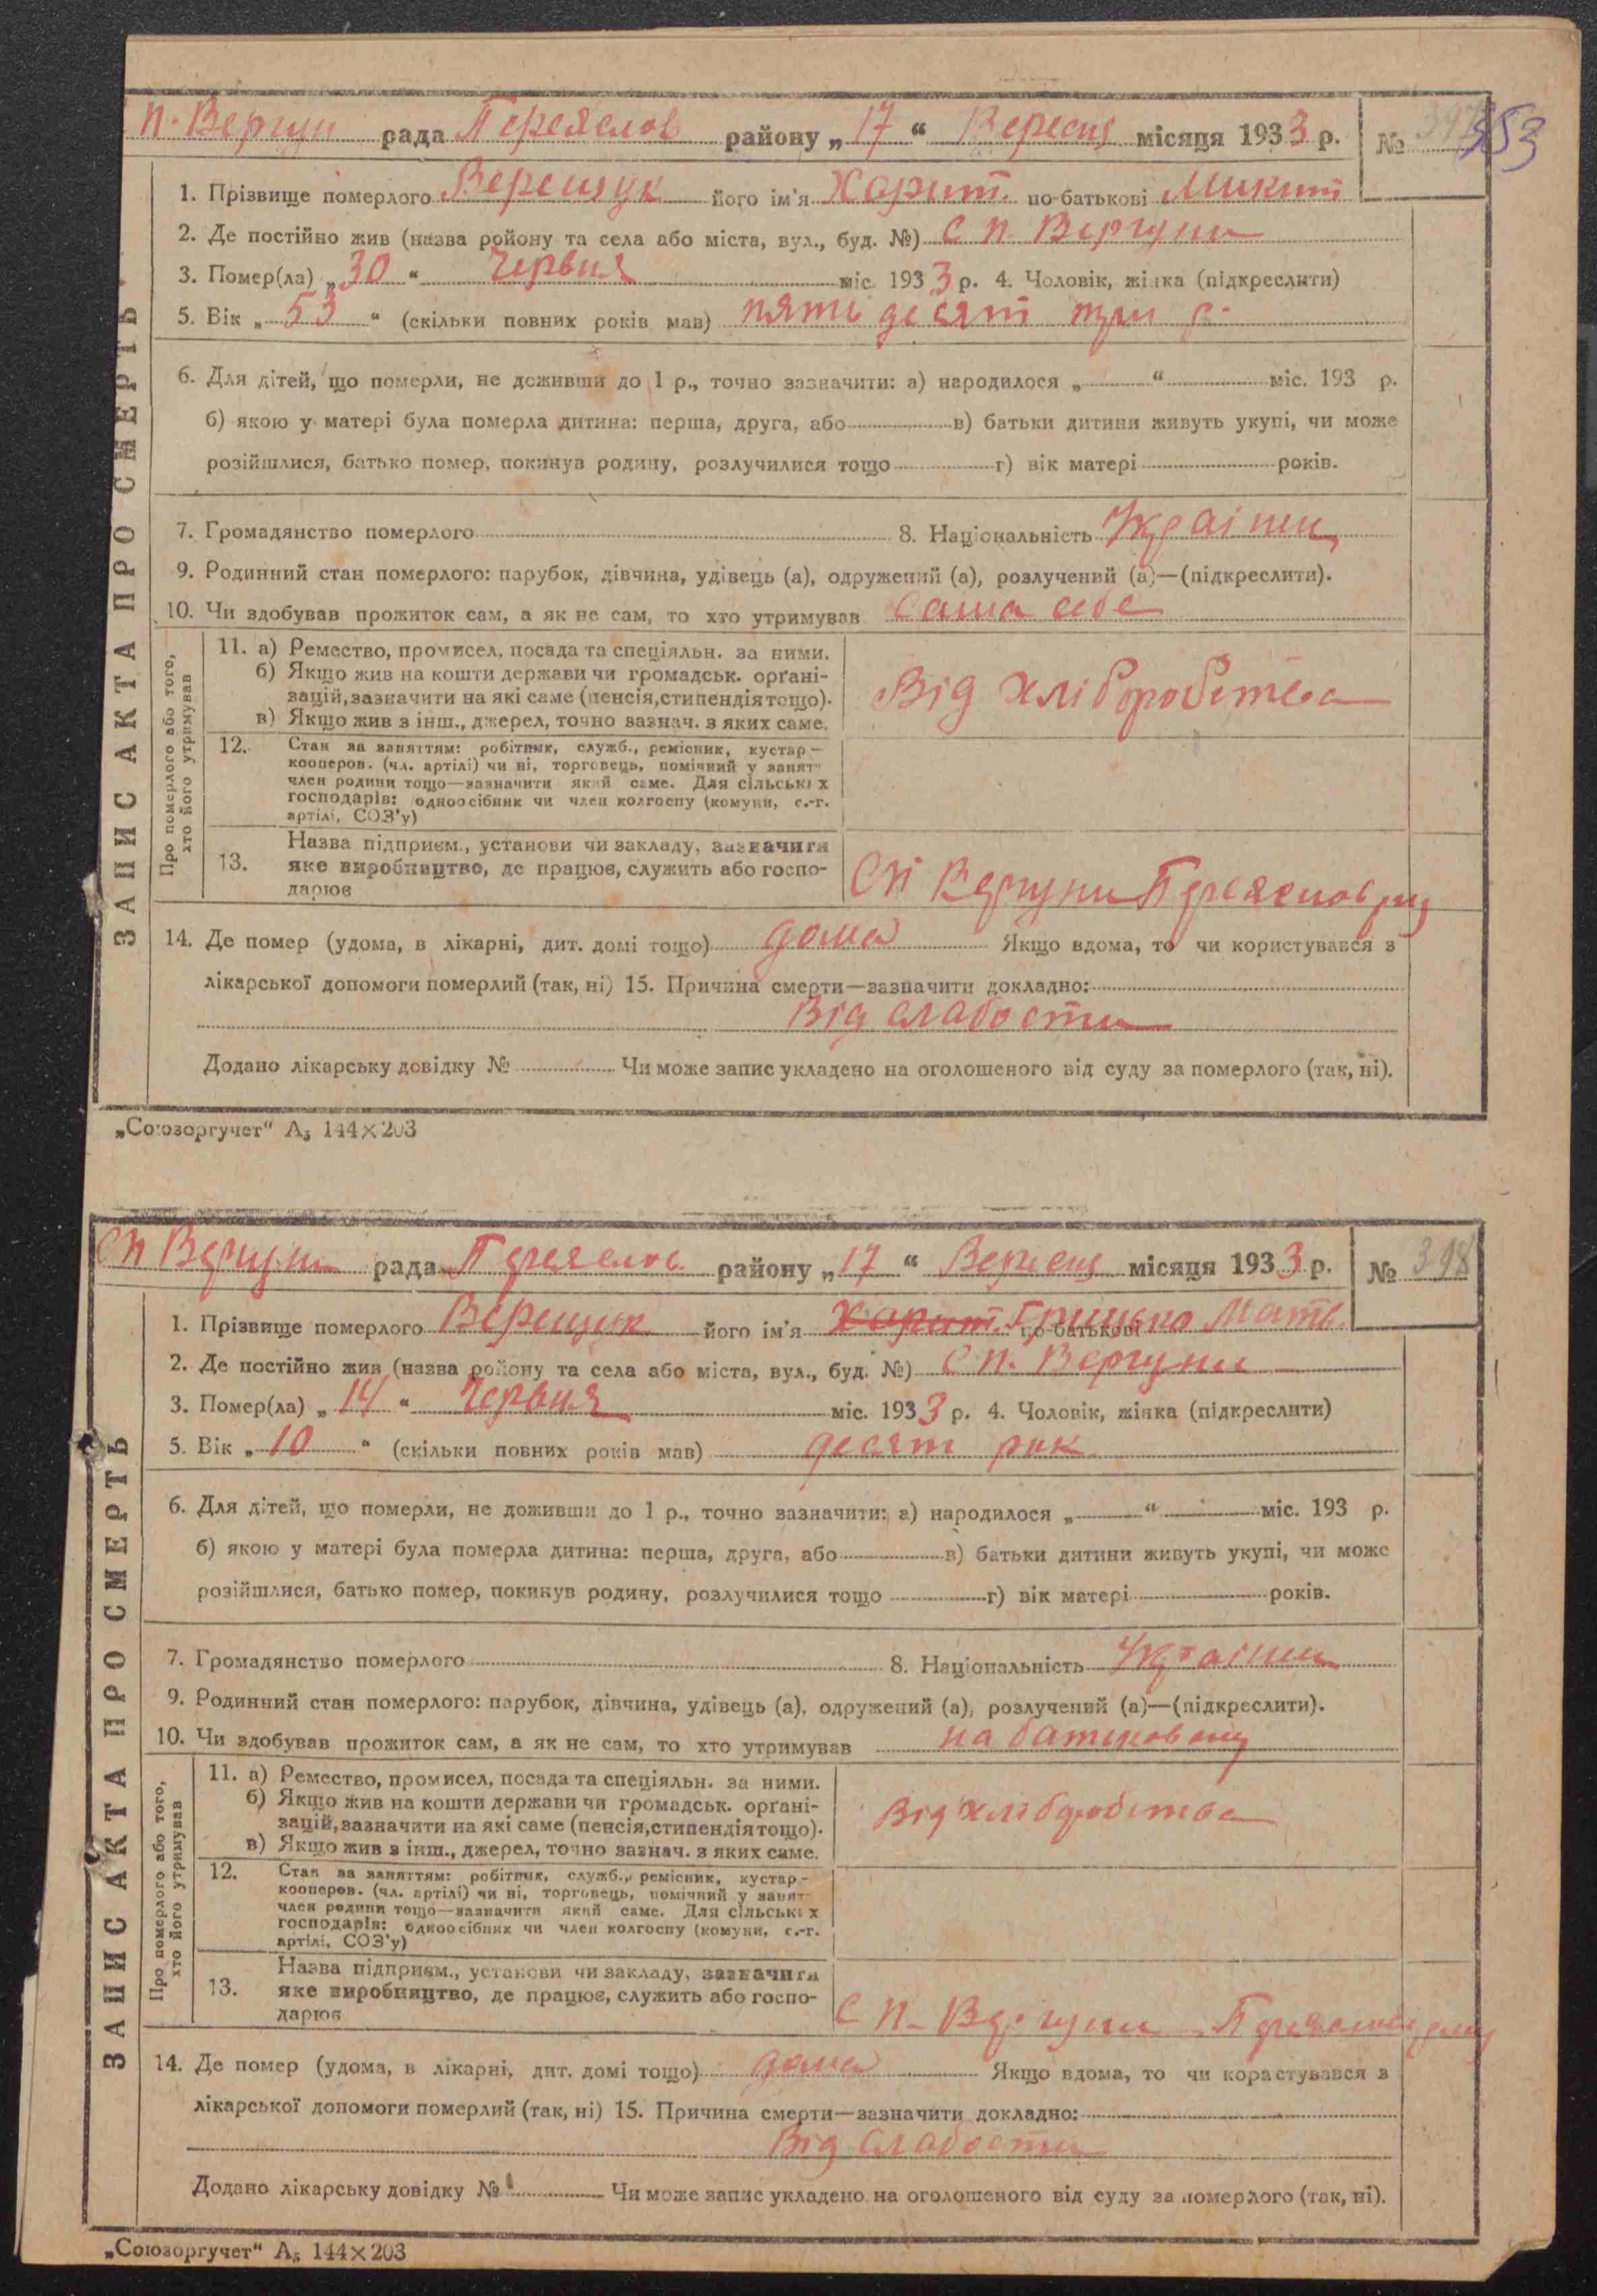 п. Вергун рада Переяслов району „17“ Вересня місяця 1933 р. № 397 553
ЗАПИС АКТА ПРО СМЕРТЬ
1. Прізвище померлого Верещук його ім'я Харит. по-батькові Микит
2. Де постійно жив (назва ройону та села або міста, вул., буд. №) С п. Вергуни
3. Помер(ла) „30“ Червня міс. 1933 р. 4. Чоловік, жінка (підкреслити)
5. Вік „53“ (скільки повних років мав) пять десят три р.
6. Для дітей, що померли, не доживши до 1 р., точно зазначити: а) народилося „ “ міс. 193 р.
б) якою у матері була померла дитина: перша, друга, або в) батьки дитини живуть укупі, чи може
розійшлися, батько помер, покинув родину, розлучилися тощо г) вік матері років.
7. Громадянство померлого 8. Національність Україн
9. Родинний стан померлого: парубок, дівчина, удівець (а), одружений (а), розлучений (а)—(підкреслити).
10. Чи здобував прожиток сам, а як не сам, то хто утримував сама себе
Про померлого або того,
хто його утримував
11. а) Ремество, промисел, посада та спеціяльн. за ними.
б) Якщо жив на кошти держави чи громадськ. орґані-
зацій, зазначити на які саме (пенсія, стипендія тощо).
в) Якщо жив з інш., джерел, точно зазнач. з яких саме.
Від хліборобства
12. Стан за заняттям: робітник, служб., ремісник, кустар—
кооперов. (чл. артілі) чи ні, торговець, помічний у занят
член родини тощо—зазначити який саме. Для сільських
господарів: одноосібник чи член колгоспу (комуни, с.-г.
артілі, СОЗ'у)
13. Назва підприєм., установи чи закладу, зазначити
яке виробництво, де працює, служить або госпо-
дарює
СП Вергуни Переяслов
14. Де помер (удома, в лікарні, дит. домі тощо) дома Якщо вдома, то чи користувався з
лікарської допомоги померлий (так, ні) 15. Причина смерти—зазначити докладно:
Від слабости
Додано лікарську довідку № Чи може запис укладено на оголошеного від суду за померлого (так, ні).
„Союзоргучет“ А₅ 144×203
СП Вергуни рада Переяслов району „17“ Вересня місяця 1933 р. № 398
ЗАПИС АКТА ПРО СМЕРТЬ
1. Прізвище померлого Верещук його ім'я Харит. Грицько по-батькові Матв.
2. Де постійно жив (назва ройону та села або міста, вул., буд. №) С п. Вергуни
3. Помер(ла) „14“ Червня міс. 1933 р. 4. Чоловік, жінка (підкреслити)
5. Вік „10“ (скільки повних років мав) десят рик
6. Для дітей, що померли, не доживши до 1 р., точно зазначити: а) народилося „ “ міс. 193 р.
б) якою у матері була померла дитина: перша, друга, або в) батьки дитини живуть укупі, чи може
розійшлися, батько помер, покинув родину, розлучилися тощо г) вік матері років.
7. Громадянство померлого 8. Національність Україн
9. Родинний стан померлого: парубок, дівчина, удівець (а), одружений (а), розлучений (а)—(підкреслити).
10. Чи здобував прожиток сам, а як не сам, то хто утримував на батьковому
Про померлого або того,
хто його утримував
11. а) Ремество, промисел, посада та спеціяльн. за ними.
б) Якщо жив на кошти держави чи громадськ. орґані-
зацій, зазначити на які саме (пенсія, стипендія тощо).
в) Якщо жив з інш., джерел, точно зазнач. з яких саме.
Від хліборобства
12. Стан за заняттям: робітник, служб., ремісник, кустар—
кооперов. (чл. артілі) чи ні, торговець, помічний у занят
член родини тощо—зазначити який саме. Для сільських
господарів: одноосібник чи член колгоспу (комуни, с.-г.
артілі, СОЗ'у)
13. Назва підприєм., установи чи закладу, зазначити
яке виробництво, де працює, служить або госпо-
дарює
С п- Вергуни
14. Де помер (удома, в лікарні, дит. домі тощо) дома Якщо вдома, то чи користувався з
лікарської допомоги померлий (так, ні) 15. Причина смерти—зазначити докладно:
Від слабости
Додано лікарську довідку № Чи може запис укладено на оголошеного від суду за померлого (так, ні).
„Союзоргучет“ А₅ 144×203